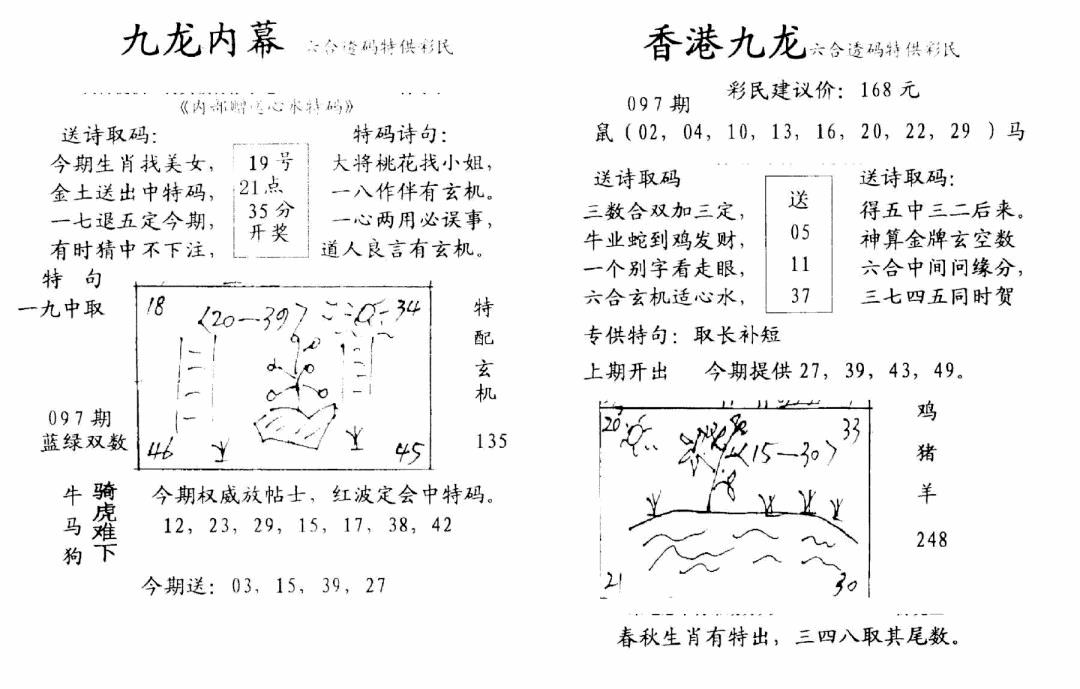 九龙内幕 六合透码特供彩民
《内部赠送心水特码》
送诗取码：
今期生肖找美女，
金土送出中特码，
一七退五定今期，
有时猜中不下注，
19号
21点
35分
开奖
特码诗句：
大将桃花找小姐，
一八作伴有玄机。
一心两用必误事，
道人良言有玄机。
特 句
一九中取
097期
蓝绿双数
18
〈20—39〉
34
46
45
特
配
玄
机
135
牛
马
狗
骑
虎
难
下
今期权威放帖士，红波定会中特码。
12，23，29，15，17，38，42
今期送：03，15，39，27
香港九龙 六合透码特供彩民
彩民建议价：168元
097期
鼠（02，04，10，13，16，20，22，29 ）马
送诗取码
三数合双加三定，
牛业蛇到鸡发财，
一个别字看走眼，
六合玄机适心水，
送
05
11
37
送诗取码：
得五中三二后来。
神算金牌玄空数
六合中间问缘分，
三七四五同时贺
专供特句：取长补短
上期开出 今期提供27，39，43，49。
20
〈15—30〉
33
21
30
鸡
猪
羊
248
春秋生肖有特出，三四八取其尾数。